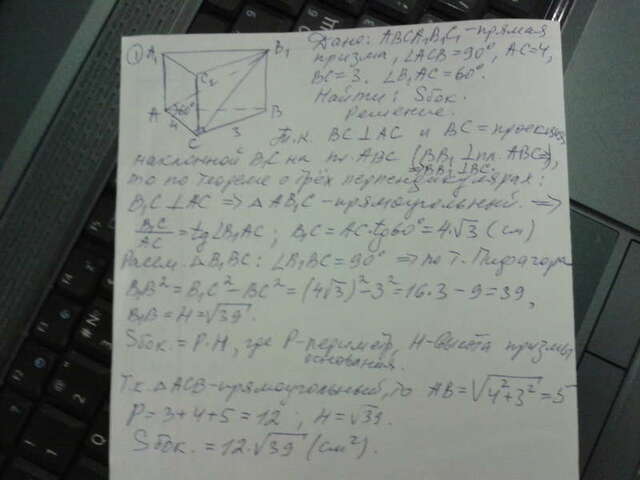 ① A₁ B₁ C₁ A 60° B 4 3 C
Дано: ABCA₁B₁C₁ - прямая
призма, ∠ACB = 90°, AC = 4,
BC = 3. ∠B₁AC = 60°.
Найти: Sбок.
Решение.
Т.к. BC ⊥ AC и BC = проекция
наклонной B₁C на пл. ABC (BB₁ ⊥ пл. ABC ⇒
⇒ BB₁ ⊥ BC),
то по теореме о трёх перпендикулярах:
B₁C ⊥ AC ⇒ △AB₁C - прямоугольный. ⇒
B₁C/AC = tg∠B₁AC; B₁C = AC·tg60° = 4√3 (см)
Рассм. △B₁BC: ∠B₁BC = 90° ⇒ по т. Пифагора
B₁B² = B₁C² - BC² = (4√3)² - 3² = 16·3 - 9 = 39,
B₁B = H = √39.
Sбок. = P·H, где P - периметр, H - высота призмы
основания.
Т.к. △ACB - прямоугольный, то AB = √4² + 3² = 5
P = 3 + 4 + 5 = 12; H = √39.
Sбок. = 12·√39 (см²).